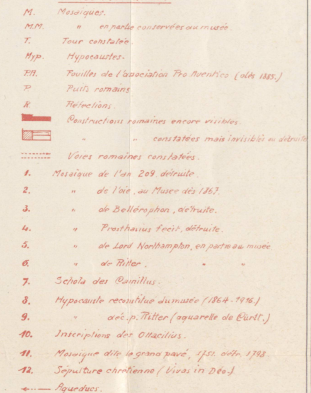 M. Mosaïques.
M.M. " en partie conservées au musée.
T. Tour constatée.
Hyp. Hypocaustes.
P.A. Fouilles de l'association Pro Aventico (dès 1885.)
P. Puits romains
R. Réfections.
Constructions romaines encore visibles.
" " constatées mais invisibles ou détruites
Voies romaines constatées.
1. Mosaïque de l'an 209, détruite.
2. " de l'oie, au Musée dès 1867.
3. " de Bellérophon, détruite.
4. " Prosthasius fecit, détruite.
5. " de Lord Northampton, en partie au musée
6. " de Ritter, " "
7. Schola des Camillus.
8. Hypocauste reconstitué du musée (1864-1916)
9. " déc. p. Ritter (aquarelle de Curt.)
10. Inscriptions des Otacilius.
11. Mosaïque dite le grand pavé, 1751.
12. Sépulture chrétienne (Vivas in Deo.)
Aqueducs.